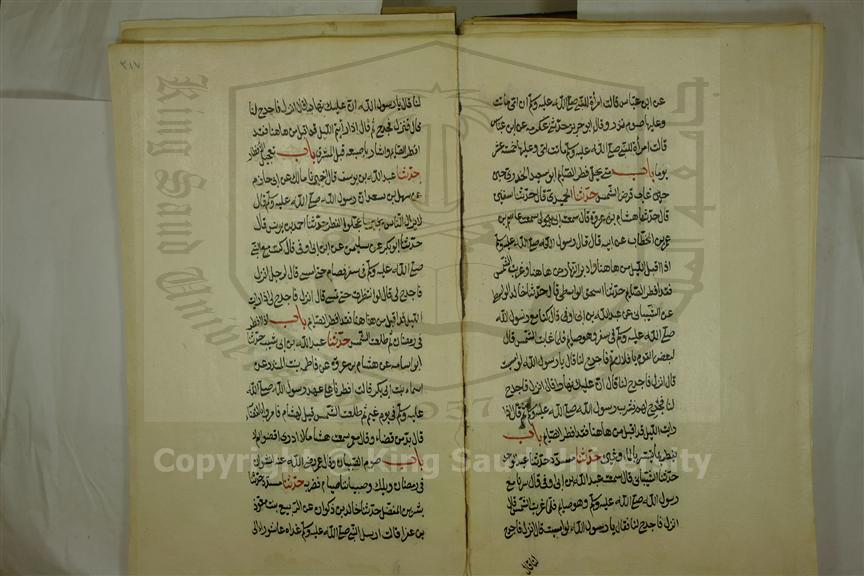 عن ابن عباس قالت امرأة للنبي صلى الله عليه وسلم ان امي ماتت
وعليها صوم نذر وقال ابو حريز حدثني عكرمة عن ابن عباس
قالت امرأة للنبي صلى الله عليه وسلم ماتت امي وعليها خمسة عشر
يوما باب متى يحل فطر الصائم افطر ابو سعيد الخدري حين
غاب قرص الشمس حدثنا الحميدي قال حدثنا سفين
قال حدثنا هشام بن عروة قال سمعت ابي يقول سمعت عاصم بن
عمر بن الخطاب عن ابيه قال قال رسول الله صلى الله عليه وسلم
اذا اقبل الليل من هاهنا وادبر النهار من هاهنا وغربت الشمس
فقد افطر الصائم حدثنا اسحق الواسطي قال حدثنا خالد
عن الشيباني عن عبد الله بن ابي اوفى قال كنا مع رسول الله
صلى الله عليه وسلم في سفر وهو صائم فلما غابت الشمس قال
لبعض القوم يا فلان قم فاجدح لنا قال يا رسول الله لو امسيت
قال انزل فاجدح لنا قال ان عليك نهارا قال انزل فاجدح
لنا فجدح لهم فشرب رسول الله صلى الله عليه وسلم ثم قال اذا
رأيت الليل قد اقبل من هاهنا فقد افطر الصائم باب
يفطر بما تيسر بالماء وغيره حدثنا مسدد حدثنا عبد الواحد
حدثنا الشيباني قال سمعت عبد الله بن ابي اوفى قال سرنا مع
رسول الله صلى الله عليه وسلم وهو صائم فلما غربت الشمس قال
انزل فاجدح لنا فقال يا رسول الله لو امسيت قال انزل فاجدح
لنا قال
٣١٧
لنا قال يا رسول الله ان عليك نهارا قال انزل فاجدح لنا
قال فنزل فجدح ثم قال اذا رأيتم الليل قد اقبل من هاهنا فقد
افطر الصائم واشار باصبعه قبل المشرق باب تعجيل الافطار
حدثنا عبد الله بن يوسف قال اخبرنا مالك عن ابي حازم
عن سهل بن سعد ان رسول الله صلى الله عليه وسلم قال
لا يزال الناس بخير ما عجلوا الفطر حدثنا احمد بن يونس قال
حدثنا ابو بكر عن سليمن عن ابن ابي اوفى قال كنت مع النبي
صلى الله عليه وسلم في سفر فصام حتى امسى قال لرجل انزل
فاجدح لي قال لو انتظرت حتى تمسي قال انزل فاجدح لي اذا رأيت
الليل قد اقبل من هاهنا فقد افطر الصائم باب اذا افطر
في رمضان ثم طلعت الشمس حدثنا عبد الله بن ابي شيبة حدثنا
ابو اسامة عن هشام بن عروة عن فاطمة بنت المنذر عن
اسماء بنت ابي بكر قالت افطرنا على عهد رسول الله صلى الله
عليه وسلم في يوم غيم ثم طلعت الشمس قيل لهشام فامروا بالقضاء
قال بد من قضاء وقال معمر سمعت هشاما لا ادري اقضوا ام لا
باب صوم الصبيان وقال عمر رضي الله عنه لنشوان
في رمضان ويلك وصبياننا صيام فضربه حدثنا مسدد حدثنا
بشر بن المفضل حدثنا خالد بن ذكوان عن الربيع بنت معوذ
بن عفراء قالت ارسل النبي صلى الله عليه وسلم غداة عاشوراء الى
King Saud University
1957
جامعة الملك سعود
Copyright © King Saud University